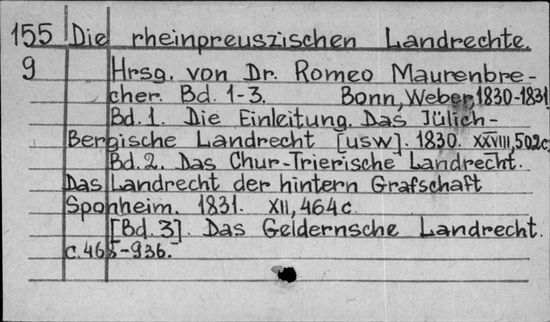 155 Die rheinpreuszischen Landrechte.
9 Hrsg. von Dr. Romeo Maurenbre-
cher. Bd. 1-3. Bonn, Weber, 1830-1831
Bd. 1. Die Einleitung. Das Jülich-
Bergische Landrecht [usw]. 1830. XXVIII, 502c.
Bd. 2. Das Chur-Trierische Landrecht.
Das Landrecht der hintern Grafschaft
Sponheim. 1831. XII, 464 c.
[Bd. 3]. Das Geldernsche Landrecht.
c. 465-936.